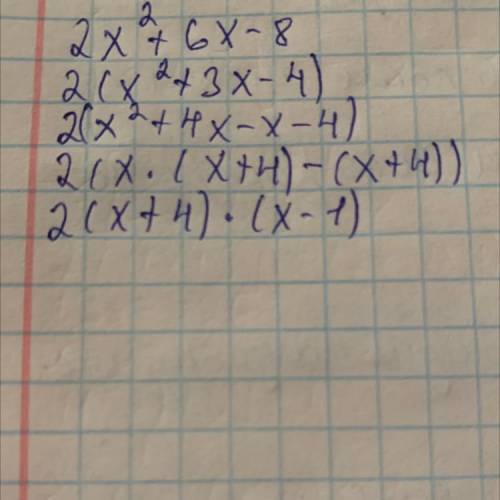 2x²+6x-8
2(x²+3x-4)
2(x²+4x-x-4)
2(x·(x+4)-(x+4))
2(x+4)·(x-1)